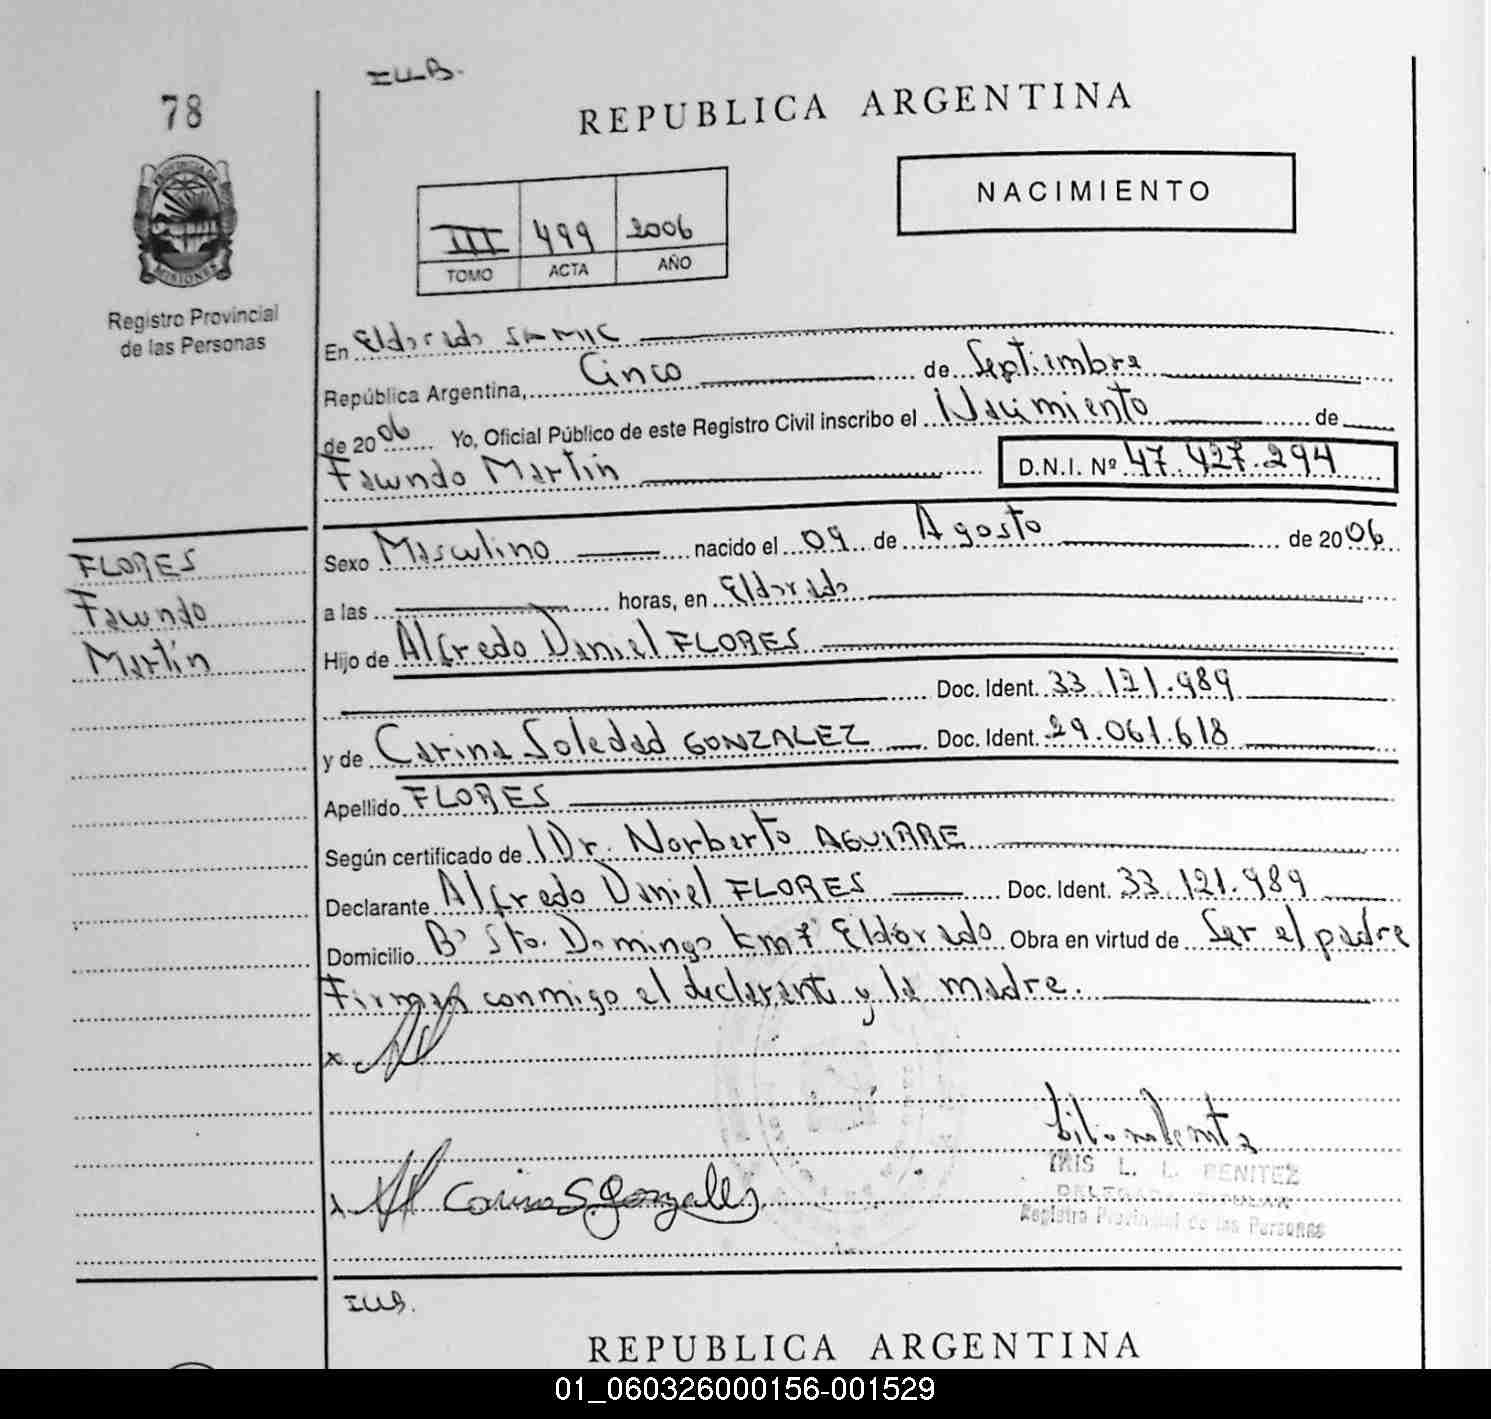 I.L.B.
78
REPUBLICA ARGENTINA
PROVINCIA DE MISIONES
NACIMIENTO
III 499 2006
TOMO ACTA AÑO
Registro Provincial
de las Personas
En Eldorado SAMIC
República Argentina, Cinco de Septiembre
de 2006 Yo, Oficial Público de este Registro Civil inscribo el Nacimiento de
Facundo Martín D.N.I. Nº 47.427.294
FLORES
Facundo
Martín
Sexo Masculino nacido el 09 de Agosto de 2006
a las horas, en Eldorado
Hijo de Alfredo Daniel FLORES
Doc. Ident. 33.121.989
y de Carina Soledad GONZALEZ Doc. Ident. 29.061.618
Apellido FLORES
Según certificado de Dr. Norberto AGUIRRE
Declarante Alfredo Daniel FLORES Doc. Ident. 33.121.989
Domicilio Bº Sto. Domingo km 7 Eldorado Obra en virtud de Ser el padre
Firman conmigo el declarante y la madre.
x
x Carina S. Gonzalez
IRIS L. L. BENITEZ
DELEGADA TITULAR
Registro Provincial de las Personas
I.L.B.
REPUBLICA ARGENTINA
01_060326000156-001529